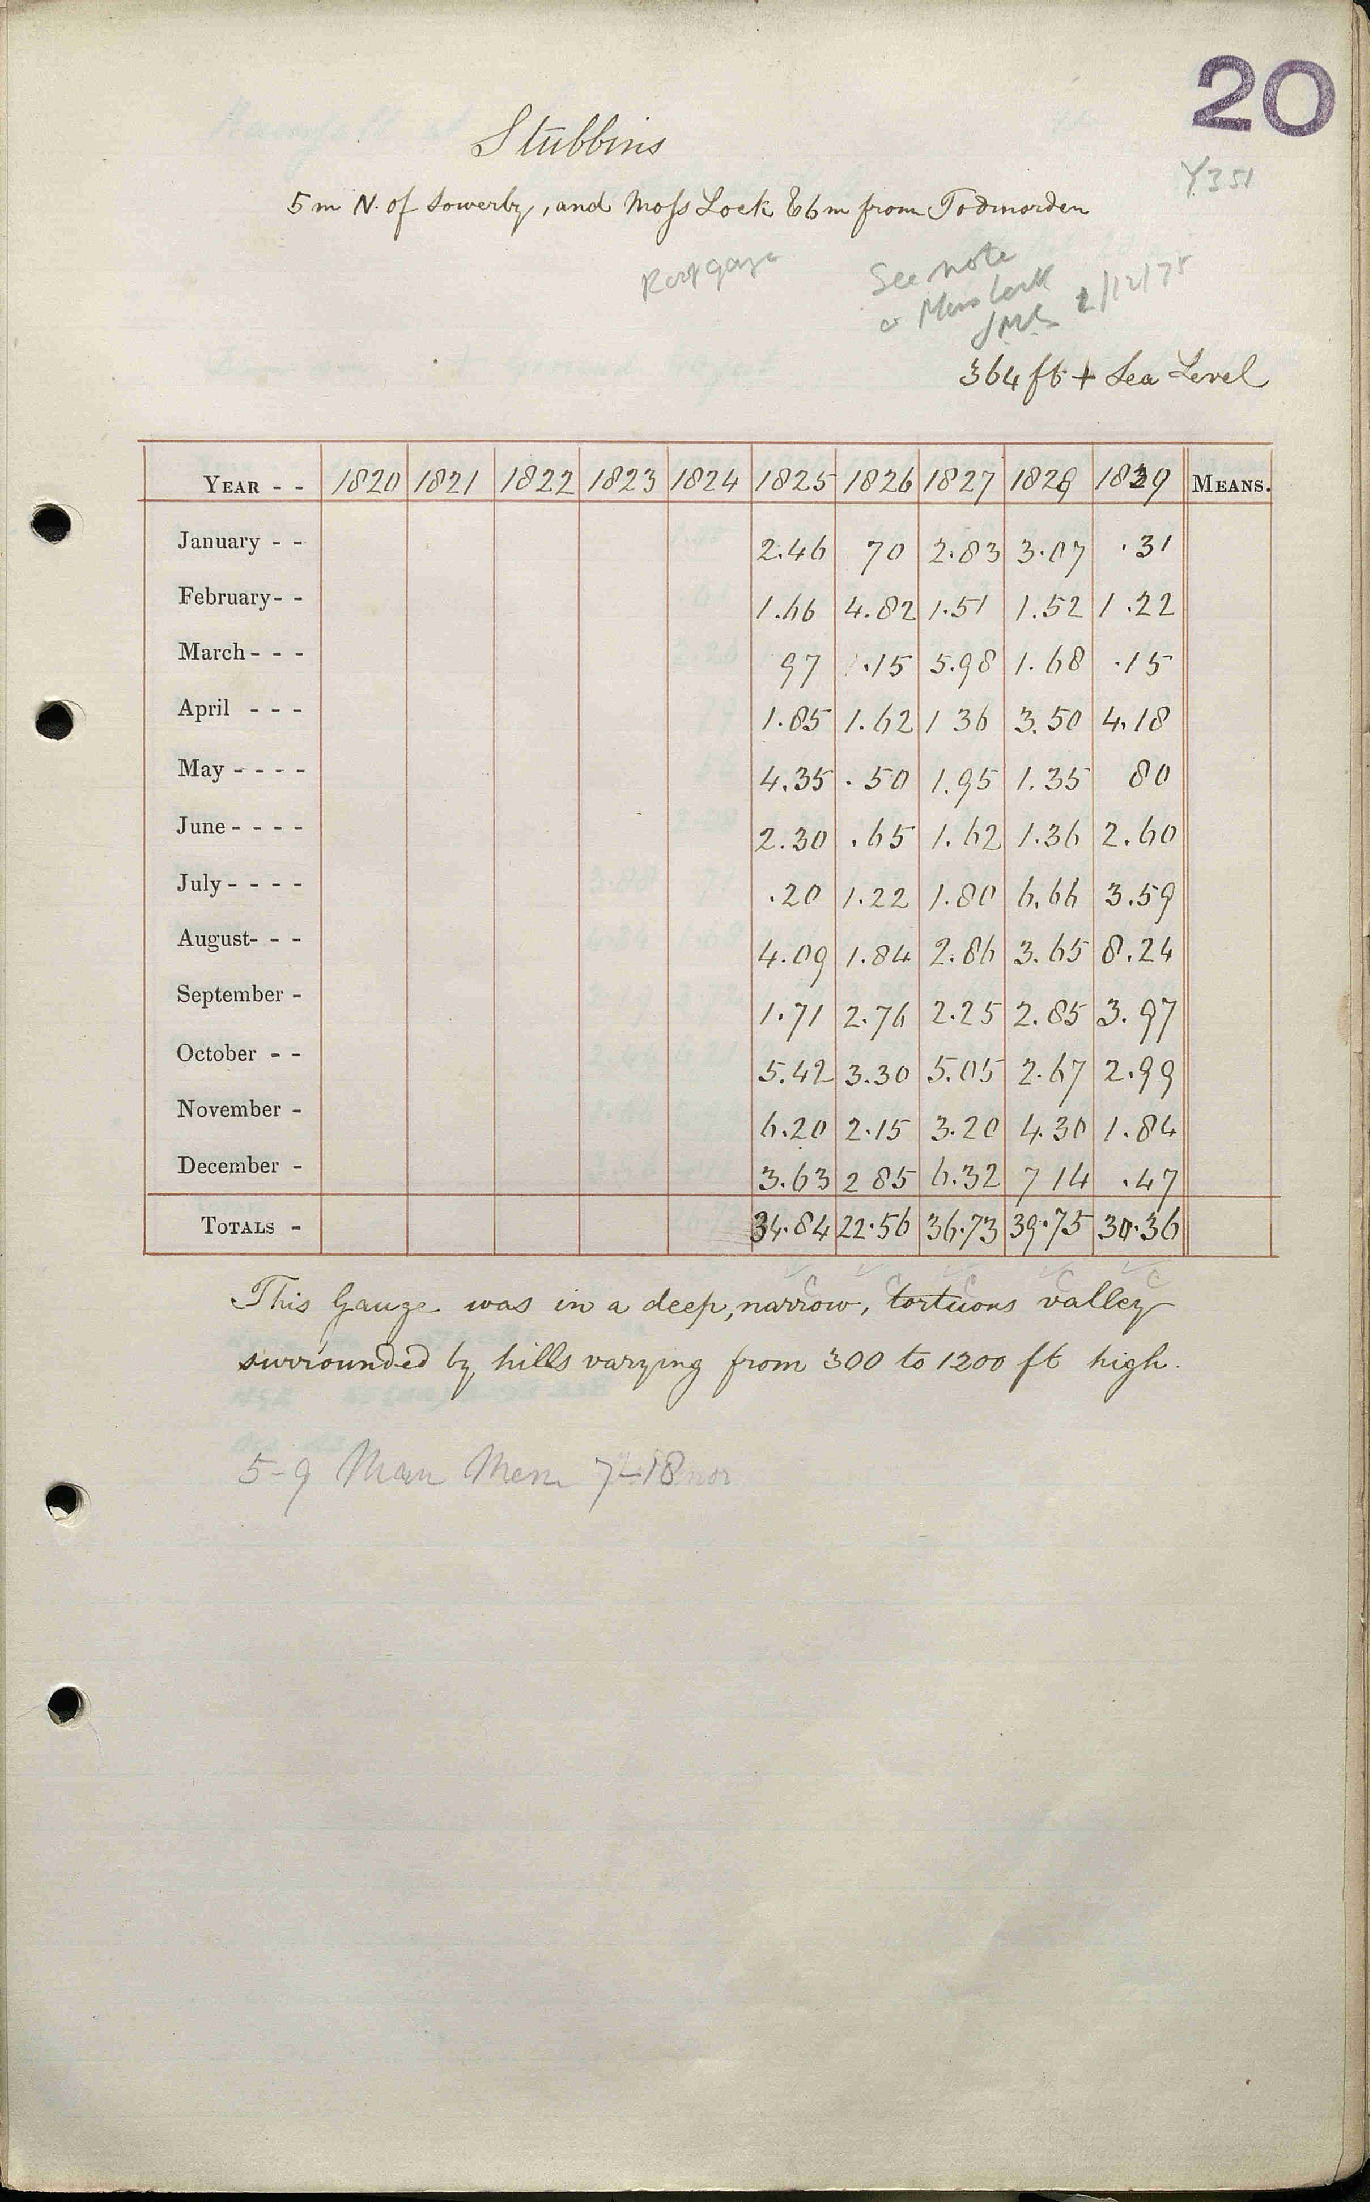 20
Stubbins
Y.351
5 m N. of Sowerby, and Moss Lock & 6 m from Todmorden
See note
Moss Lock
2/12/75
364 ft + Sea Level
YEAR - - 1820 1821 1822 1823 1824 1825 1826 1827 1828 1829 MEANS.
January - - 2.46 70 2.83 3.07 .31
February - - 1.66 4.82 1.51 1.52 1.22
March - - - 97 1.15 5.98 1.68 .15
April - - - 1.85 1.62 1 36 3.50 4.18
May - - - - 4.35 .50 1.95 1.35 80
June - - - - 2.30 .65 1.62 1.36 2.60
July - - - - .20 1.22 1.80 6.66 3.59
August- - - 4.09 1.84 2.86 3.65 8.24
September - 1.71 2.76 2.25 2.85 3.97
October - - 5.42 3.30 5.05 2.67 2.99
November - 6.20 2.15 3.20 4.30 1.84
December - 3.63 2 85 6.32 7 14 .47
TOTALS - 34.84 22.56 36.73 39.75 30.36
This Gauge was in a deep, narrow, tortuous valley
surrounded by hills varying from 300 to 1200 ft high.
5-9 Man Mem 7-18